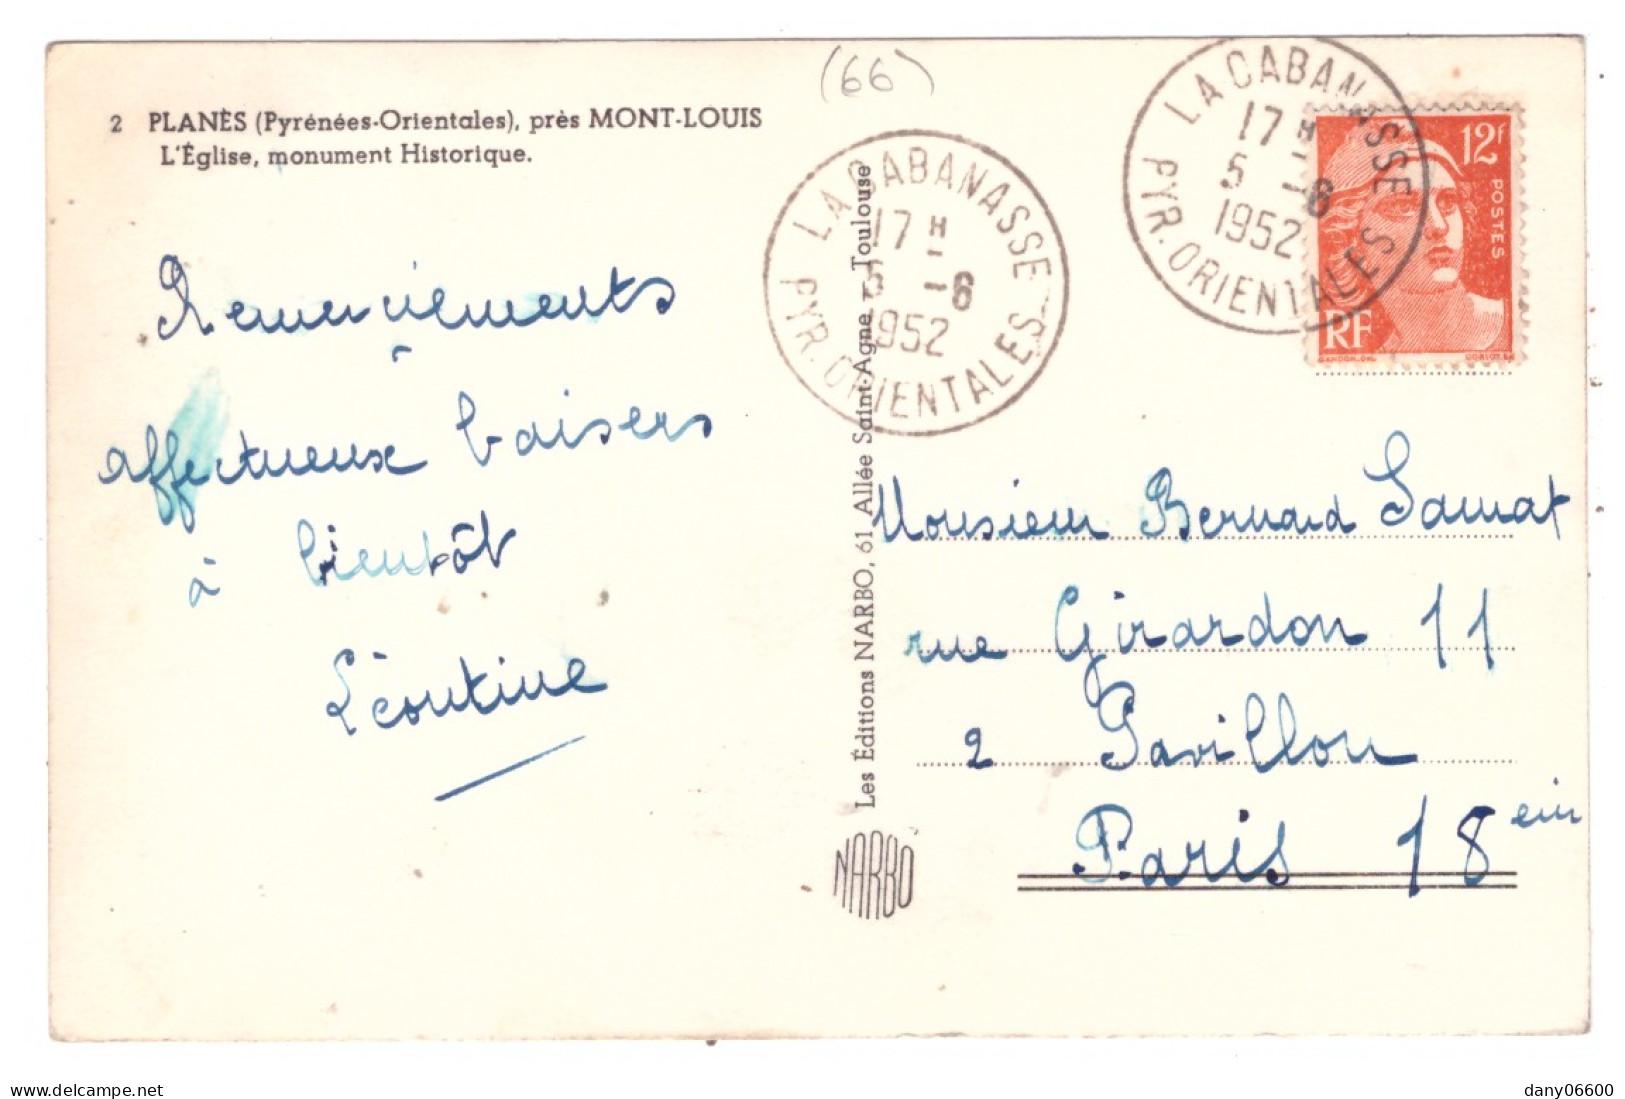 (66)
2 PLANÈS (Pyrénées-Orientales), près MONT-LOUIS
L'Église, monument Historique.
Remerciements
affectueux baisers
à bientôt
Léontine
Les Éditions NARBO, 61 Allée Saint-Agne - Toulouse
NARBO
LA CABANASSE
17 H
5 -6
1952
PYR. ORIENTALES
LA CABANASSE
17 H
5 -6
1952
PYR. ORIENTALES
12F
POSTES
RF
GANDON. DEL.
Monsieur Bernard Samat
rue Girardon 11
2 Pavillon
Paris 18 eme
delcampe.net
dany06600